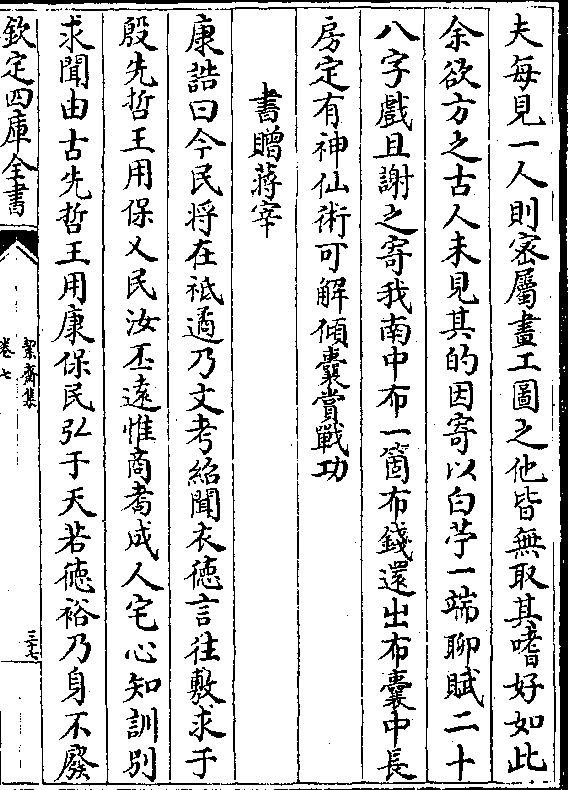 夫每見一人則密屬畫工圖之他皆無取其嗜好如此
余欲方之古人未見其的因寄以白苧一端聊賦二十
八字戲且謝之寄我南中布一箇布錢還出布囊中長
房定有神仙術可解傾囊賞戰功
書贈蔣宰
康誥曰今民將在祗遹乃文考紹聞衣徳言往敷求于
殷先哲王用保乂民汝丕遠惟商耇成人宅心知訓別
求聞由古先哲王用康保民弘于天若徳裕乃身不廢
欽定四庫全書
絜齋集
卷七
三七